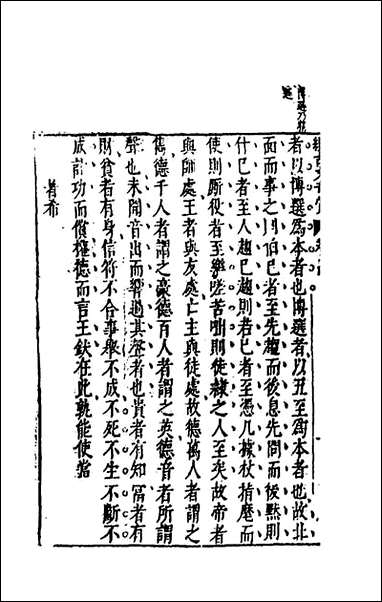 者以博選爲本者也博選者以五至爲本者也故北
面而事之則伯已者至先趨而後息先問而後黙則
什已者至人趨已趨則若已者至憑几據杖指麾而
使則厮役者至樂嗟苦咄則徒隷之人至矣故帝者
與師處王者與友處亡主與徒處故德萬人者謂之
雋德千人者謂之豪德百人者謂之英德音者所謂
聲也未聞音出而響過其聲者也貴者有知富者有
財貧者有身信符不合事舉不成不死不生不斷不
成計功而償權德而言王鈇在此孰能使營
著希